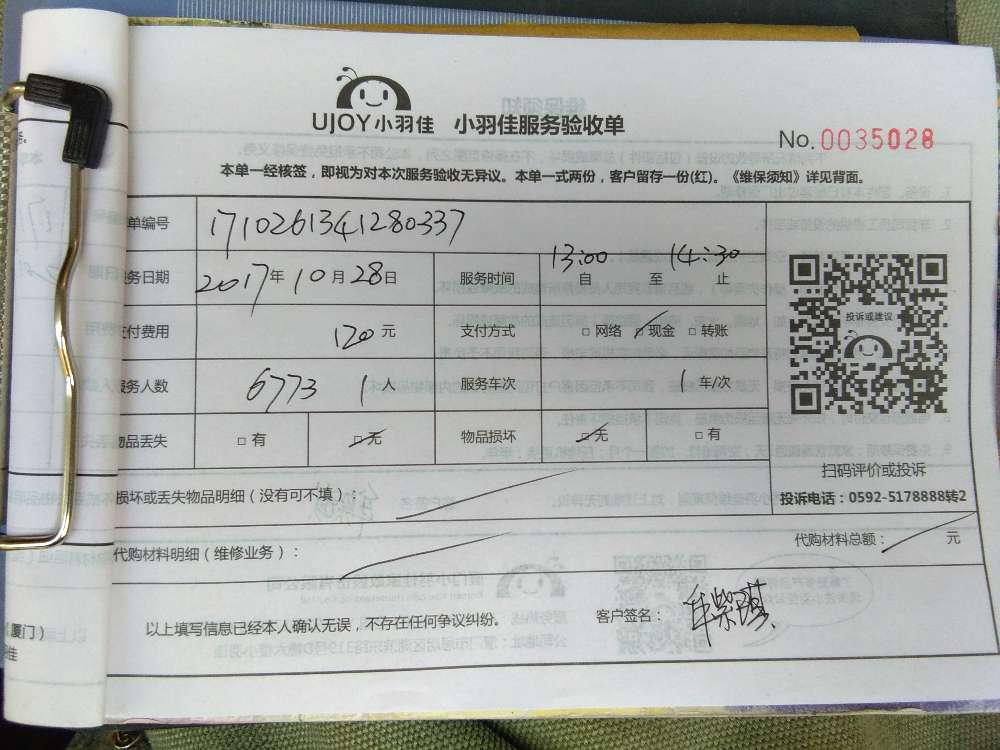 UJOY小羽佳 小羽佳服务验收单
No.0035028
本单一经核签，即视为对本次服务验收无异议。本单一式两份，客户留存一份(红)。《维保须知》详见背面。
单编号 171026134128033​7
务日期 2017年10月28日 服务时间 13:00 自 至 14:30 止
付费用 120元 支付方式 □网络 □现金 □转账
服务人数 6773 1人 服务车次 1车/次
物品丢失 □有 □无 物品损坏 □无 □有
投诉或建议
扫码评价或投诉
投诉电话：0592-5178888转2
损坏或丢失物品明细（没有可不填）：
代购材料明细（维修业务）： 代购材料总额： 元
以上填写信息已经本人确认无误，不存在任何争议纠纷。 客户签名： 紫琪
厦门）
佳